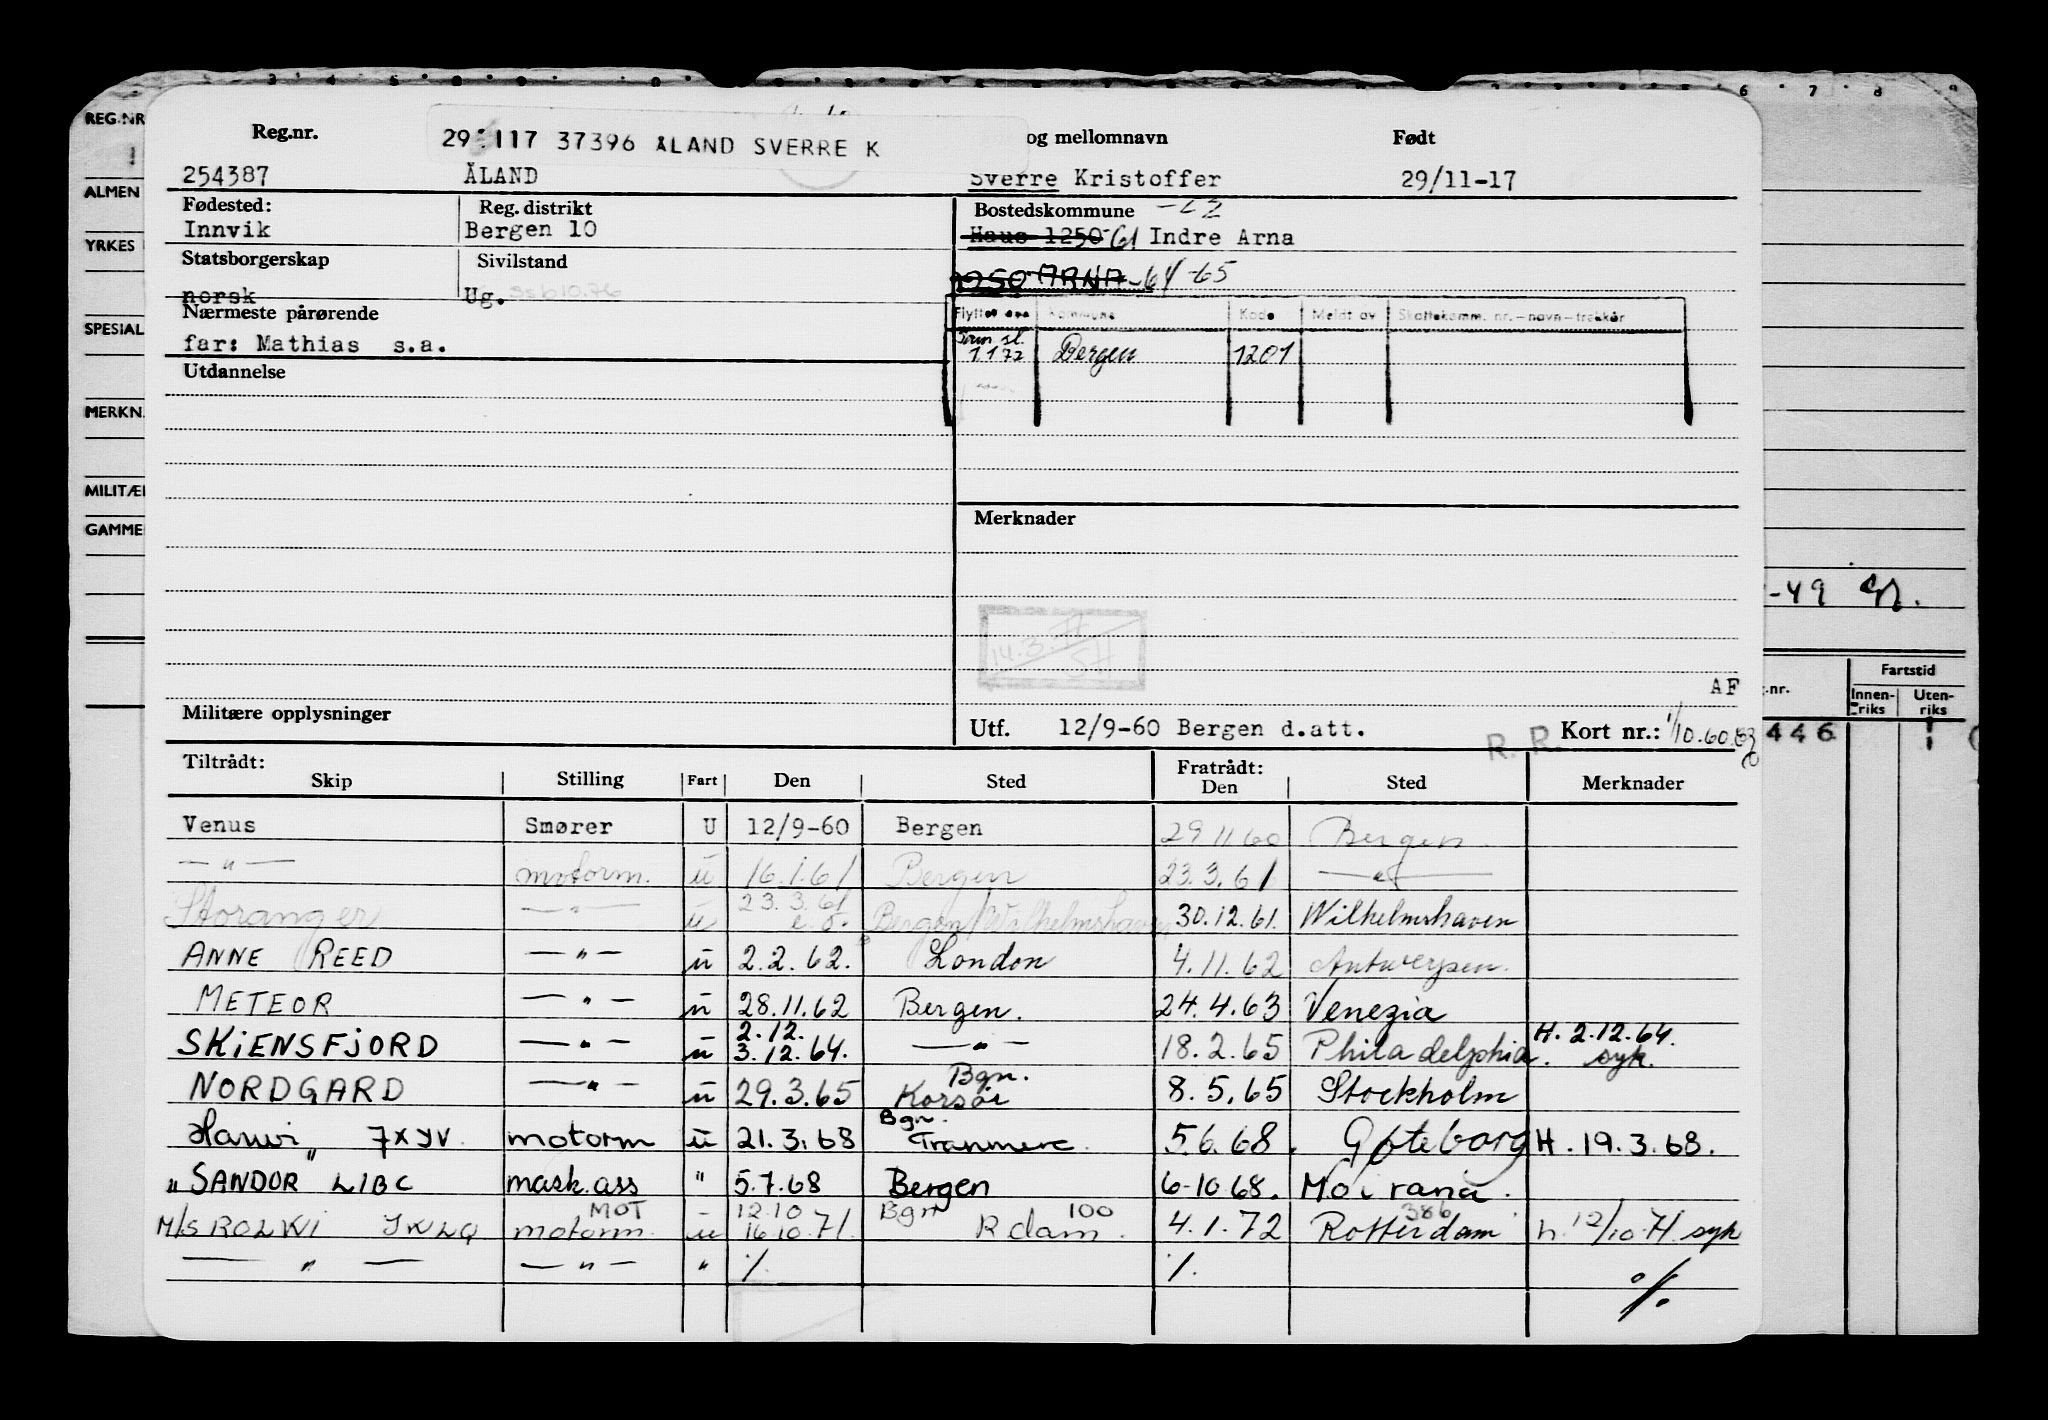 REG.NR
ALMEN
YRKES
SPESIAL
MERKN.
MILITÆR
GAMME
Reg.nr. 29 117 37396 ÅLAND SVERRE K og mellomnavn Født
254387 ÅLAND Sverre Kristoffer 29/11-17
Fødested: Reg. distrikt Bostedskommune
Innvik Bergen 10 Haus 1250-61 Indre Arna
Statsborgerskap Sivilstand
1250 ARNA-64-65
norsk Ug.
Nærmeste pårørende
Flyttet Kommune Kode Meldt av Skattekomm. nr.-navn-trekkår
far: Mathias s.a. 1 1 72 Bergen 1201
Utdannelse
Merknader
-49
14.3.77
AF
Militære opplysninger
Utf. 12/9-60 Bergen d.att. R. R. Kort nr.:
Fartstid
.nr. Innen-riks Uten-riks
446
Tiltrådt: Fratrådt:
Skip Stilling Fart Den Sted Den Sted Merknader
Venus Smører U 12/9-60 Bergen 29 11 60 Bergen
—„— motorm. u 16.1.61 Bergen 23.3.61 —„—
Storanger —„— u 23.3.61 e.o. Bergen/Wilhelmshaven 30.12.61. Wilhelmshaven
ANNE REED —„— u 2.2.62. London 4.11.62 Antwerpen.
METEOR —„— u 28.11.62 Bergen. 24.4.63 Venezia
SKIENSFJORD —„— u 2.12. 3.12.64. —„— 18.2.65 Philadelphia. H. 2.12.64. syk.
NORDGARD —„— u 29.3.65 Bgn. Korsør 8.5.65 Stockholm
Hanvi" 7XYV. motorm u 21.3.68 Bgn. Tranmere. 5.6.68. Gøteborg H. 19.3.68.
"SANDOR LIBC mask.ass " 5.7.68 Bergen 6-10 68. Mo i rana.
M/S ROLKI JXLQ MOT motorm. u 12.10 16.10.71. Bgn R dam. 100 4.1.72 Rotterdam 386 h. 12/10.71. syk
—„— —„— " %. %. %.